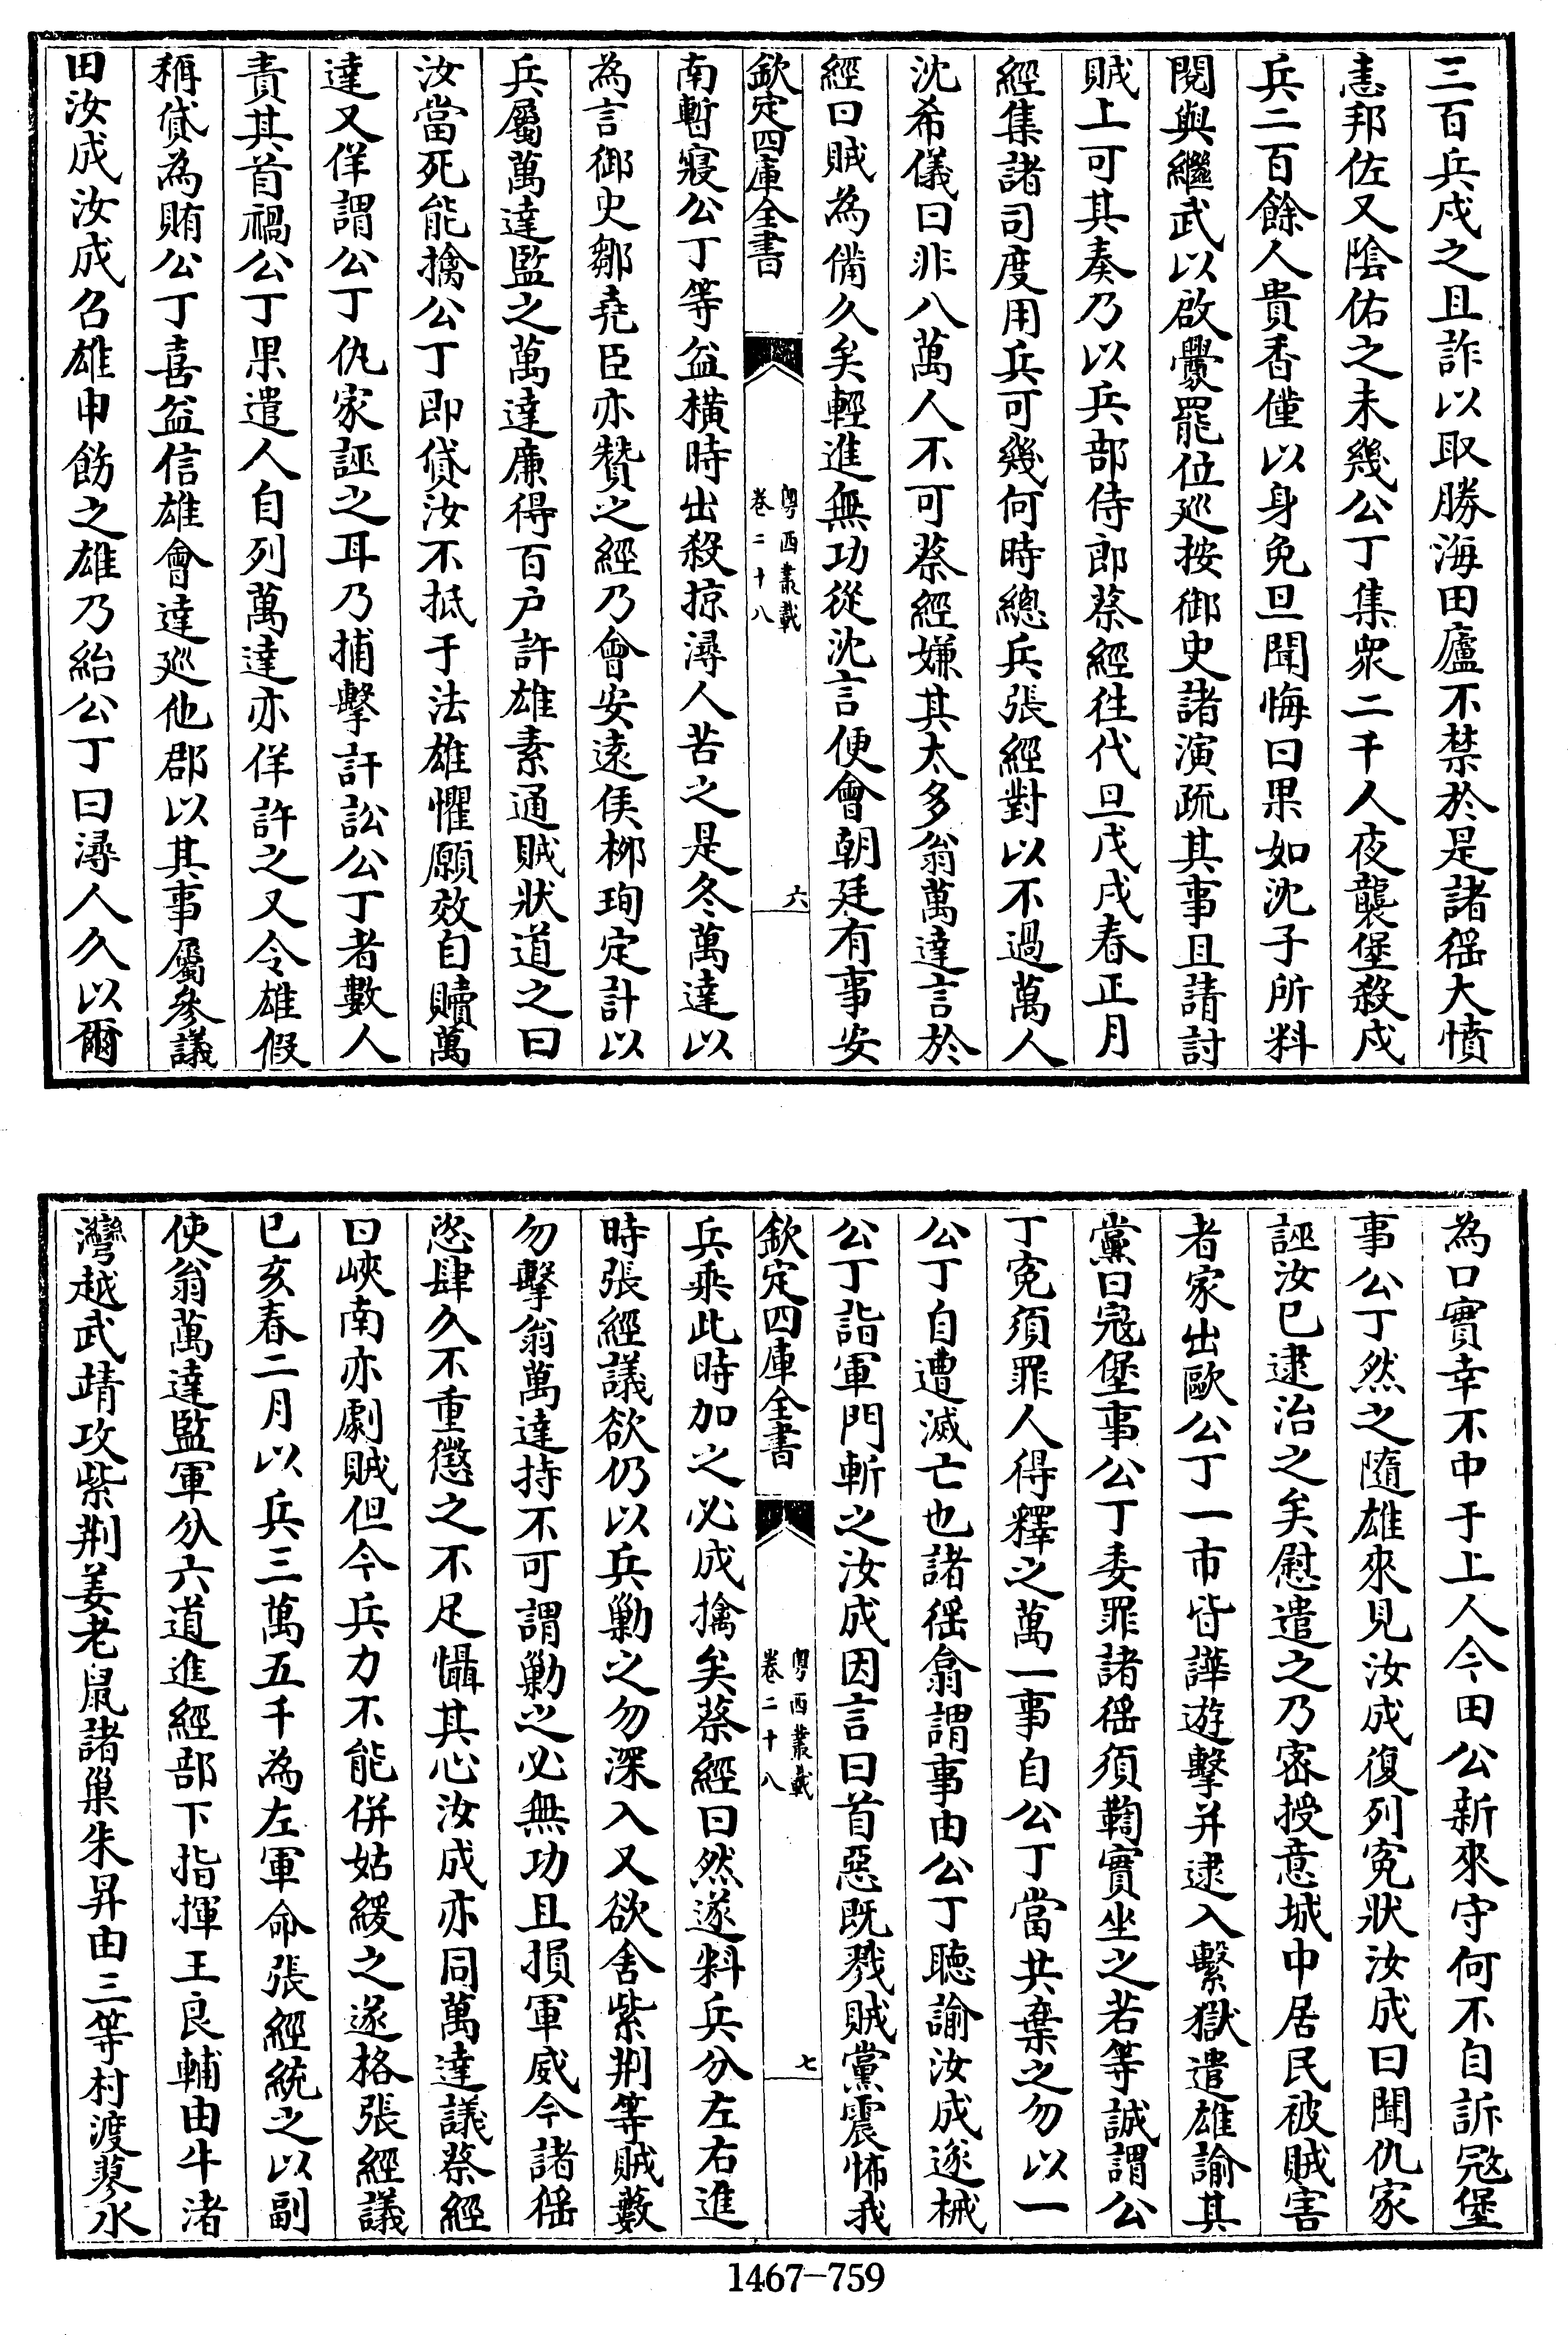 三百兵戍之且詐以取勝海田廬不禁於是諸徭大憤
恚邦佐又陰佑之未幾公丁集衆二千人夜襲堡殺戍
兵二百餘人貴香僅以身免旦聞悔曰果如沈子所料
閱與繼武以啟釁罷位廵按御史諸演疏其事且請討
賊上可其奏乃以兵部侍郎蔡經往代旦戊戌春正月
經集諸司度用兵可幾何時總兵張經對以不過萬人
沈希儀曰非八萬人不可蔡經嫌其太多翁萬達言於
經曰賊為備久矣輕進無功從沈言便會朝廷有事安
欽定四庫全書
粤西叢載
卷二十八
六
南暫寢公丁等益橫時出殺掠潯人苦之是冬萬達以
為言御史鄒堯臣亦贊之經乃會安遠侯柳珣定計以
兵屬萬達監之萬達廉得百户許雄素通賊狀道之曰
汝當死能擒公丁即貸汝不抵于法雄懼願效自贖萬
達又佯謂公丁仇家誣之耳乃捕擊訐訟公丁者數人
責其首禍公丁果遣人自列萬達亦佯許之又令雄假
稱貸為賄公丁喜益信雄會達廵他郡以其事屬參議
田汝成汝成召雄申飭之雄乃紿公丁曰潯人久以爾
為口實幸不中于上人今田公新來守何不自訴冦堡
事公丁然之隨雄來見汝成復列寃狀汝成曰聞仇家
誣汝已逮治之矣慰遣之乃密授意城中居民被賊害
者家出歐公丁一市皆譁遊擊并逮入繫獄遣雄諭其
黨曰寇堡事公丁委罪諸徭須鞫實坐之若等誠謂公
丁寃須罪人得釋之萬一事自公丁當共棄之勿以一
公丁自遭滅亡也諸徭翕謂事由公丁聽諭汝成遂械
公丁詣軍門斬之汝成因言曰首惡既戮賊黨震怖我
欽定四庫全書
粤西叢載
卷二十八
七
兵乘此時加之必成擒矣蔡經曰然遂料兵分左右進
時張經議欲仍以兵勦之勿深入又欲舍紫荆等賊藪
勿擊翁萬達持不可謂勦之必無功且損軍威今諸徭
恣肆久不重懲之不足懾其心汝成亦同萬達議蔡經
曰峽南亦劇賊但今兵力不能併姑緩之遂格張經議
已亥春二月以兵三萬五千為左軍命張經統之以副
使翁萬達監軍分六道進經部下指揮王良輔由牛渚
灣越武靖攻紫荆姜老鼠諸巢朱昇由三等村渡蓼水
1467—759